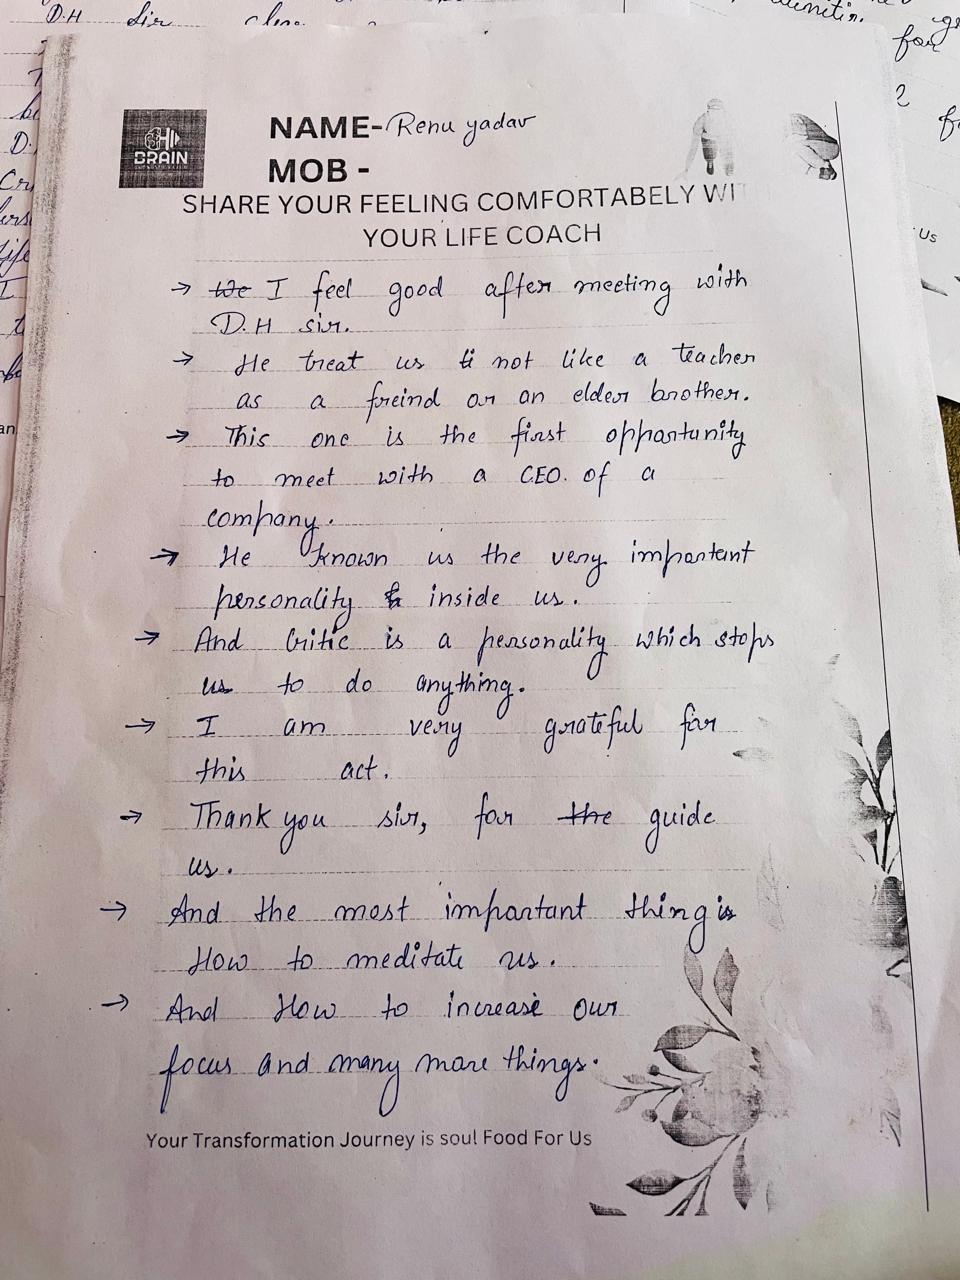 D.H Sir
for
BRAIN
NAME- Renu yadav
MOB -
SHARE YOUR FEELING COMFORTABELY WIT
YOUR LIFE COACH
Us
→ We I feel good after meeting with
D.H sir.
→ He treat us not like a teacher
as a freind or an elder brother.
→ This one is the first opportunity
to meet with a CEO. of a
company.
→ He known us the very important
personality inside us.
→ And Critic is a personality which stops
us to do anything.
→ I am very grateful for
this act.
→ Thank you sir, for the guide
us.
→ And the most important thing is
How to meditate us.
→ And How to increase our
focus and many more things.
Your Transformation Journey is soul Food For Us